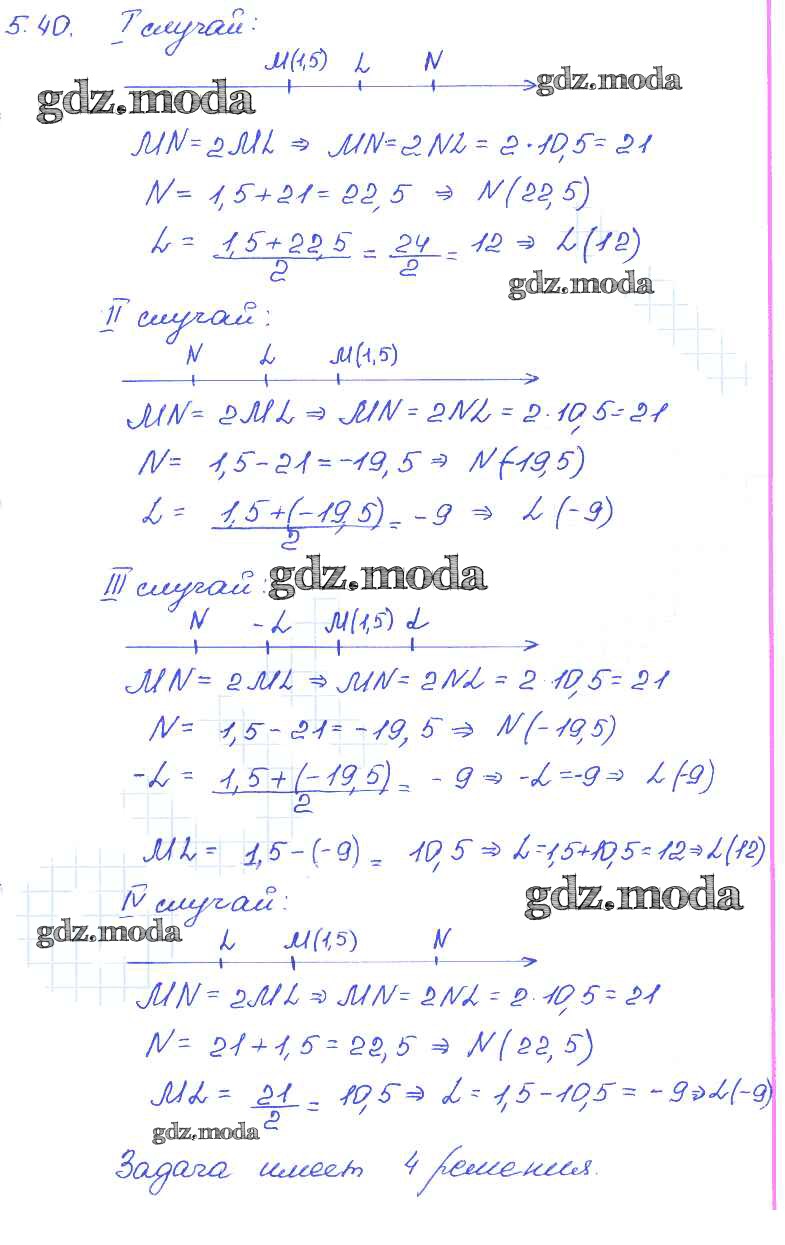 5.40. I случай:
M(1,5) L N
gdz.moda gdz.moda
MN = 2ML ⇒ MN = 2NL = 2·10,5 = 21
N = 1,5+21 = 22,5 ⇒ N(22,5)
L = (1,5+22,5)/2 = 24/2 = 12 ⇒ L(12)
gdz.moda
II случай:
N L M(1,5)
MN = 2ML ⇒ MN = 2NL = 2·10,5 = 21
N = 1,5-21 = -19,5 ⇒ N(-19,5)
L = (1,5+(-19,5))/2 = -9 ⇒ L(-9)
III случай: gdz.moda
N -L M(1,5) L
MN = 2ML ⇒ MN = 2NL = 2·10,5 = 21
N = 1,5-21 = -19,5 ⇒ N(-19,5)
-L = (1,5+(-19,5))/2 = -9 ⇒ -L = -9 ⇒ L(-9)
ML = 1,5-(-9) = 10,5 ⇒ L = 1,5+10,5 = 12 ⇒ L(12)
IV случай: gdz.moda
gdz.moda
L M(1,5) N
MN = 2ML ⇒ MN = 2NL = 2·10,5 = 21
N = 21+1,5 = 22,5 ⇒ N(22,5)
ML = 21/2 = 10,5 ⇒ L = 1,5-10,5 = -9 ⇒ L(-9)
gdz.moda
Задача имеет 4 решения.